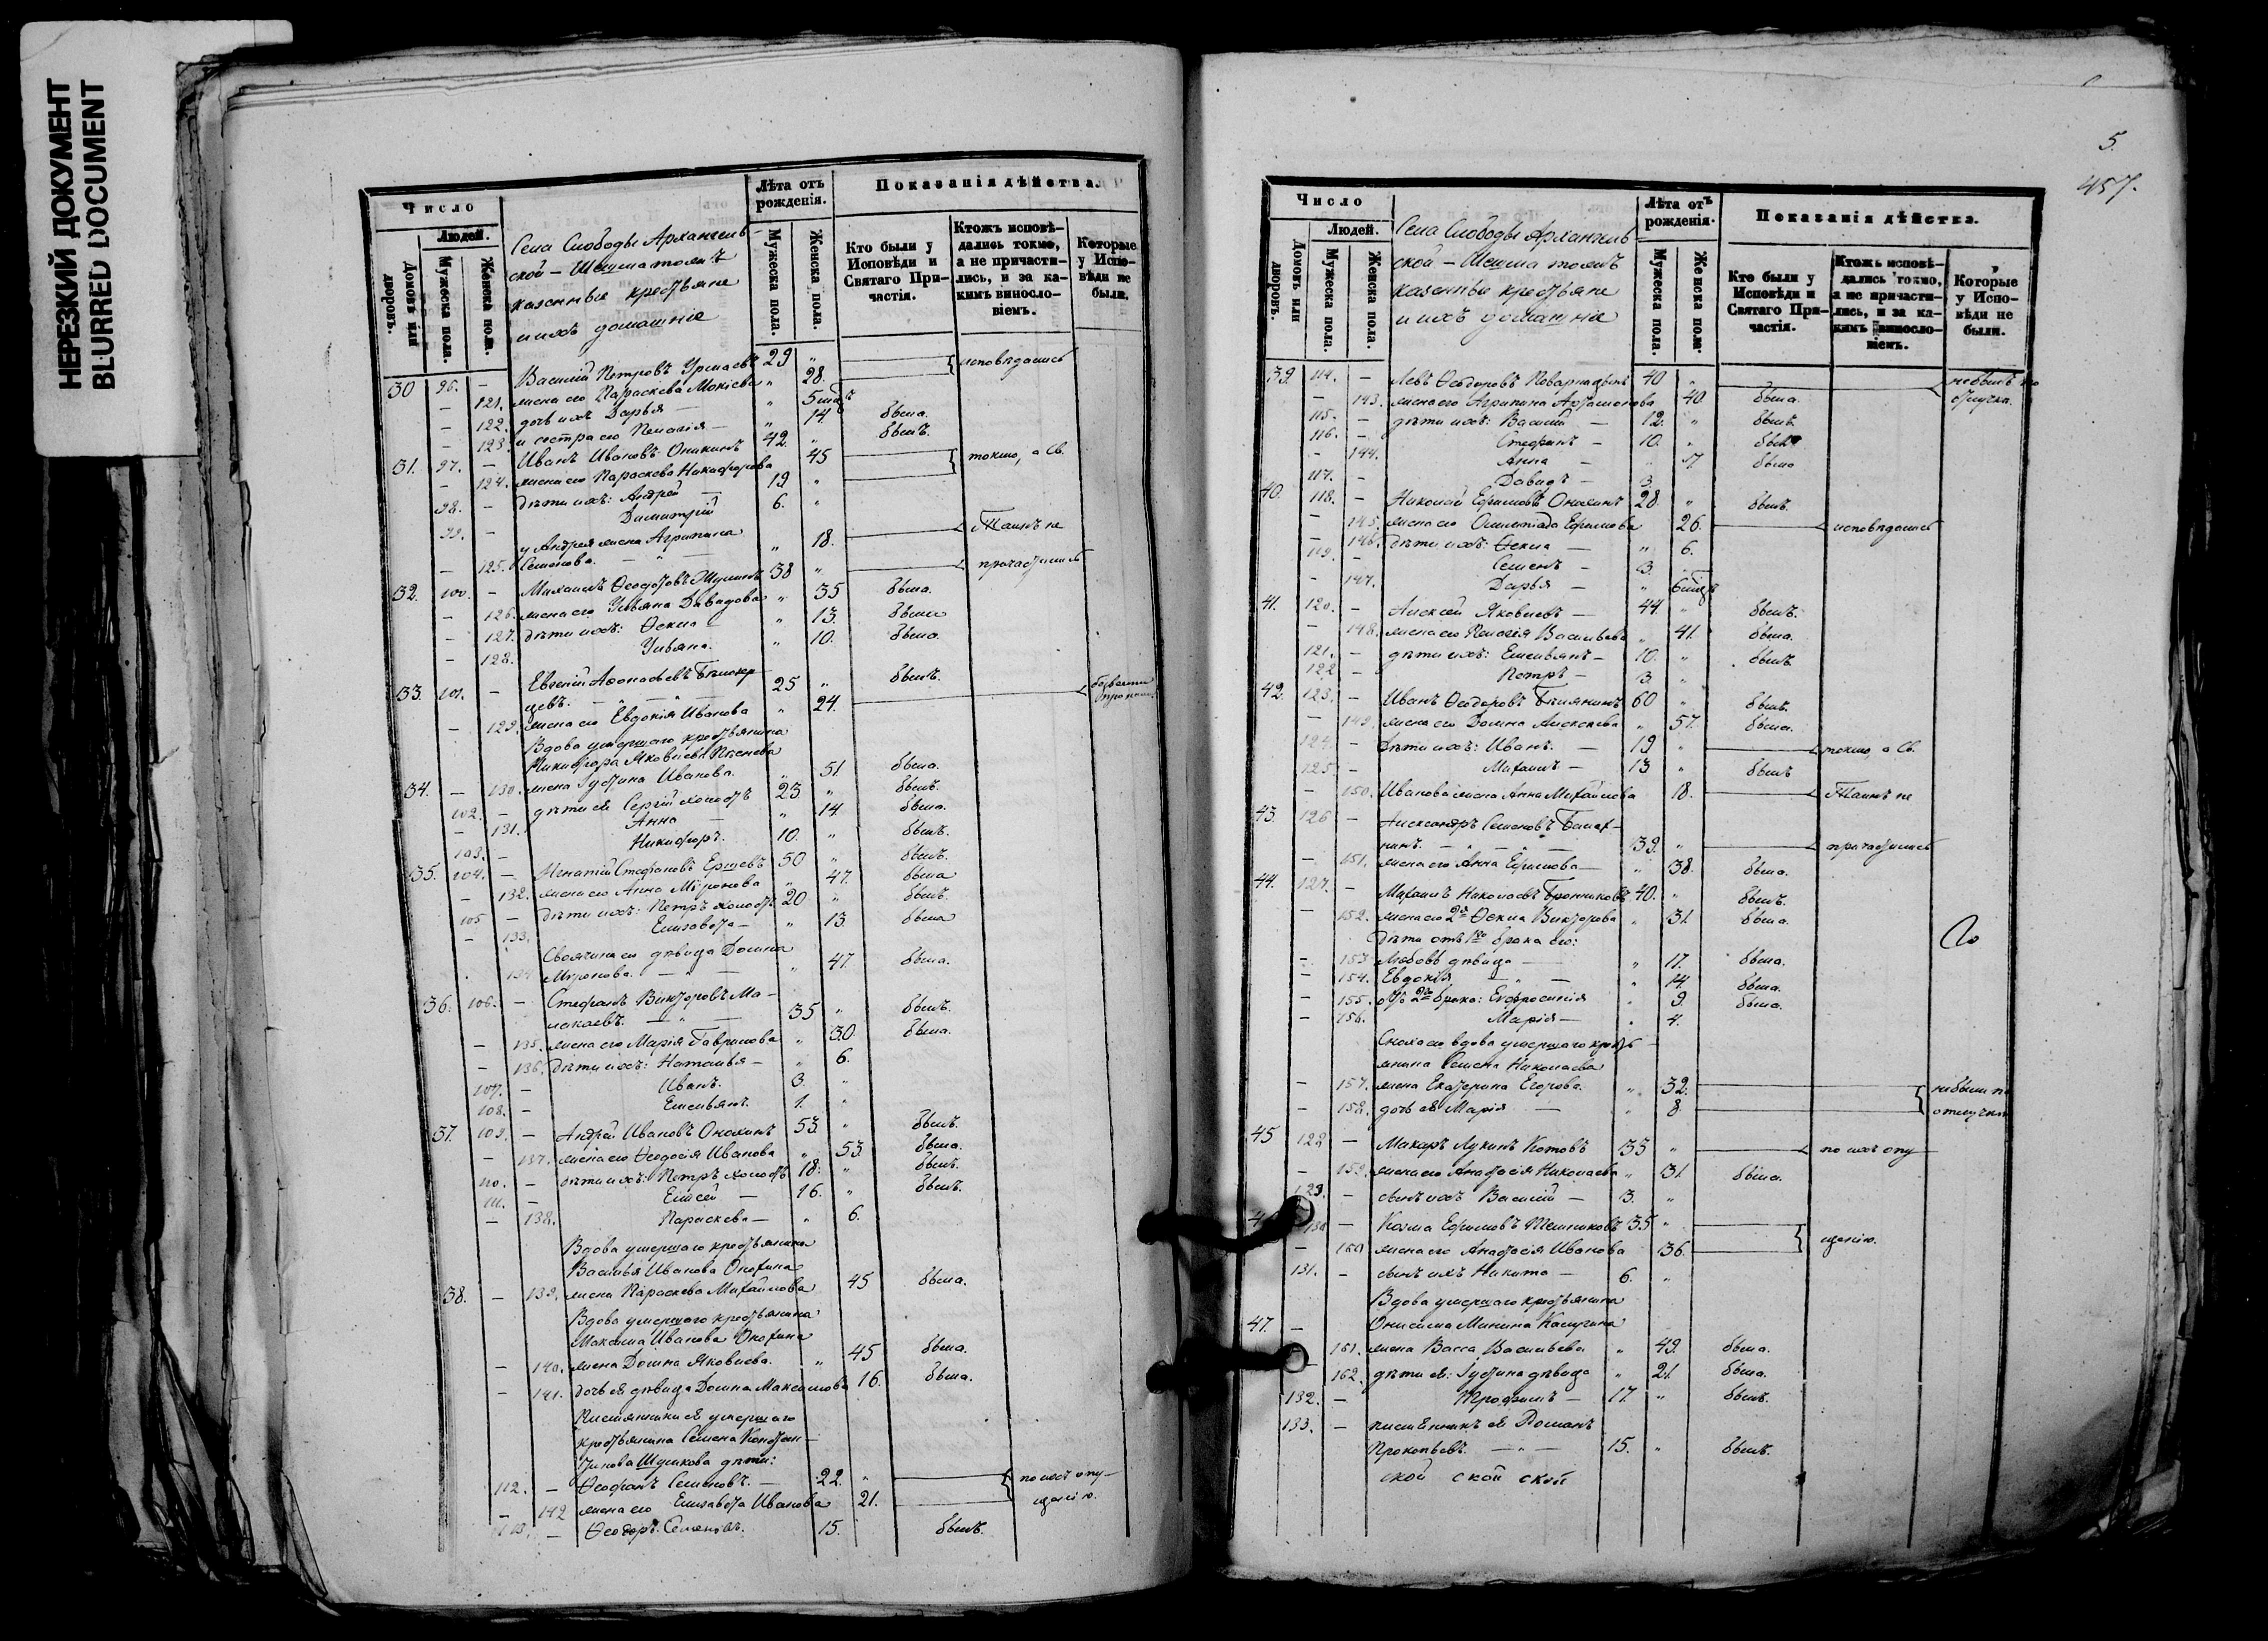 НЕРЕЗКИЙ ДОКУМЕНТ
BLURRED DOCUMENT
Число
Людей.
Домовъ или дворовъ.
Мужеска пола.
Женска пола.
Села Слободы Архангель-
ской - Шешма тожъ
казенные крестьяне
и ихъ домашніе
Лѣта отъ рожденія.
Мужеска пола.
Женска пола.
Показанія дѣйства.
Кто были у Исповѣди и Святаго Причастія.
Ктожъ исповѣдались токмо, а не причастились, и за какимъ винословіемъ.
Которые у Исповѣди не были.
30 96. - Василій Петровъ 29 " исповѣдались
- 121. жена его Параскева Мокіева " 28.
- 122. дочь ихъ Дарья - "
- 123. и сестра его Пелагія - " 14. была.
31. 97. - Иванъ Ивановъ Оникинъ 42. " былъ.
- 124. жена его Параскева Никифорова 45 токмо, а Св.
98. - дѣти ихъ: Андрей - 19 "
99. - Димитрій 6. "
у Андрея жена Агрипина
- 125. Семенова. - " 18. Таинъ не
32. 100. - Михаилъ Ѳеодотовъ 38 " причастились
- 126. жена его Ульяна Давидова " 35 была.
- 127. дѣти ихъ: Ѳекла - " 13. была
- 128. Ульяна. " 10. была.
33. 101. - Евгеній Аѳонасьевъ
цевъ. - 25 " былъ.
- 129. жена его Евдокія Иванова " 24.
Вдова умершаго крестьянина
Никифора Яковлева
34. - 130. жена Іустина Иванова. " 51. была.
102. - дѣти ея Сергій холостъ 23 " былъ.
- 131. Анна - " 14. была.
103. - Никифоръ. 10. " былъ.
35. 104. - Игнатій Стефановъ Ершевъ 50 " былъ.
- 132. жена его Анна Миронова " 47. была
105 - дѣти ихъ: Петръ холостъ 20 " былъ.
- 133. Елизавета - " 13. была
Своячина его дѣвица Домна
134 Миронова. - " - " 47. была.
36. 106. - Стефанъ Викторовъ Ма-
лакаевъ. - " - 35 " былъ.
- 135. жена его Марія Гаврилова " 30. была.
- 136. дѣти ихъ: Наталья - " 6.
107. - Иванъ. 3. "
108. - Емельянъ. 1. "
37. 109. - Андрей Ивановъ Онохинъ 53. " былъ.
- 137. жена его Ѳеодосія Иванова " 53. была.
110. - дѣти ихъ: Петръ холостъ 18. " былъ.
111. - Елисей - 16. " былъ.
- 138. Параскева - " 6.
Вдова умершаго крестьянина
Василья Иванова Онохина
38. - 139. жена Параскева Михайлова 45 была.
Вдова умершаго крестьянина
Максима Иванова Онохина
- 140. жена Домна Яковлева. " 45 была.
- 141. дочь ея дѣвица Домна Максимова 16. была.
Племянники ея умершаго
крестьянина Семена Констан-
тинова Шумкова дѣти:
112. - Ѳеофанъ Семеновъ. - 22. " по ихъ опу-
- 142 жена его Елизавета Иванова 21. щенію.
113. - Ѳеодоръ Семеновъ. 15. былъ.
5.
457.
Число
Людей.
Домовъ или дворовъ.
Мужеска пола.
Женска пола.
Села Слободы Архангель-
ской - Шешма тожъ
казенные крестьяне
и ихъ домашніе
Лѣта отъ рожденія.
Мужеска пола.
Женска пола.
Показанія дѣйства.
Кто были у Исповѣди и Святаго Причастія.
Ктожъ исповѣдались токмо, а не причастились, и за какимъ винословіемъ.
Которые у Исповѣди не были.
39. 114. - Левъ Ѳеодоровъ 40 " не былъ по
- 143. жена его Агрипина Артамонова 40. была. отлучкѣ.
115. - дѣти ихъ: Василій - 12. " былъ
116. - Стефанъ - 10. " былъ
- 144. Анна - " была
117. - Давидъ - 3.
40. 118. - Николай Ефимовъ Онохинъ 28. " былъ.
- 145. жена его Олимпіада Ефимова 26. исповѣдались
- 146. дѣти ихъ: Ѳекла - " 6.
119. - Семенъ - 3.
- 147. Дарья - "
41. 120. - Алексей Яковлевъ - 44. " былъ.
- 148. жена его Пелагія Васильева " 41. была.
121. - дѣти ихъ: Емельянъ - 10. " былъ
122 - Петръ - 3. "
42. 123. - Иванъ Ѳеодоровъ 60 " былъ.
- 149. жена его Домна Алексѣева " 57. была.
124. - Дѣти ихъ: Иванъ. - 19 " токмо, а Св.
125. - Михаилъ - 13 " былъ
- 150. Иванова жена Анна Михайлова 18. Таинъ не
43. 126 - Александръ Семеновъ
нинъ. - 39. " причастились
- 151. жена его Анна Ефимова - " 38. была.
44. 127. - Михаилъ Николаевъ Бронниковъ 40. " былъ.
- 152. жена его 2я Ѳекла Викторова " 31. была.
Дѣти отъ 1го брака его:
- 153 Любовь дѣвица - " 17. была.
- 154. Евдокія - " 14. была.
- 155. отъ 2го брака: Евфросинія " 9. была.
- 156. Марія - " 4.
Сноха его вдова умершаго кресть-
янина Семена Николаева
- 157. жена Екатерина Егорова. " 32. небыли по
- 158. дочь ея Марія - " 8. отлучкѣ
45 128 - Макаръ Лукинъ Котовъ 33 " по ихъ опу
- 159. жена его Анастасія Николаева " 31. была.
129. - сынъ ихъ Василій - 3. "
130 - Козма Ефимовъ Мельниковъ 35 "
- 160 жена его Анастасія Иванова 36. щенію.
131. - сынъ ихъ Никита - 6. "
Вдова умершаго крестьянина
47. - Онисима Минина Калугина
161. жена Васса Васильева " 49. была.
- 162. дѣти ея: Іустина дѣвица " 21. была.
132. - Трофимъ - 17. " былъ.
133. - племянникъ ея Романъ
Прокопьевъ. - " - 15. " былъ.
ской ской ской